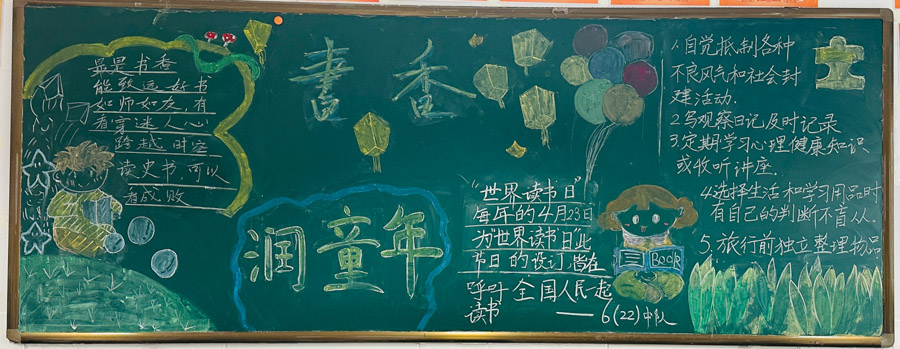 最是书香
能致远,好书
如师如友,有
者穿迷人心
跨越时空
读史书,可以
者成败
書香
润童年
"世界读书日"
每年的4月23日
为"世界读书日"此
节日的设订,尚在
呼吁全国人民一起
读书
——6(22)中队
1.自觉抵制各种
不良风气和社会封
建活动.
2.写观察日记及时记录
3.定期学习心理健康知识
或收听讲座.
4.选择生活和学习用品时
有自己的判断不盲从.
5.旅行前独立整理物品
BOOK